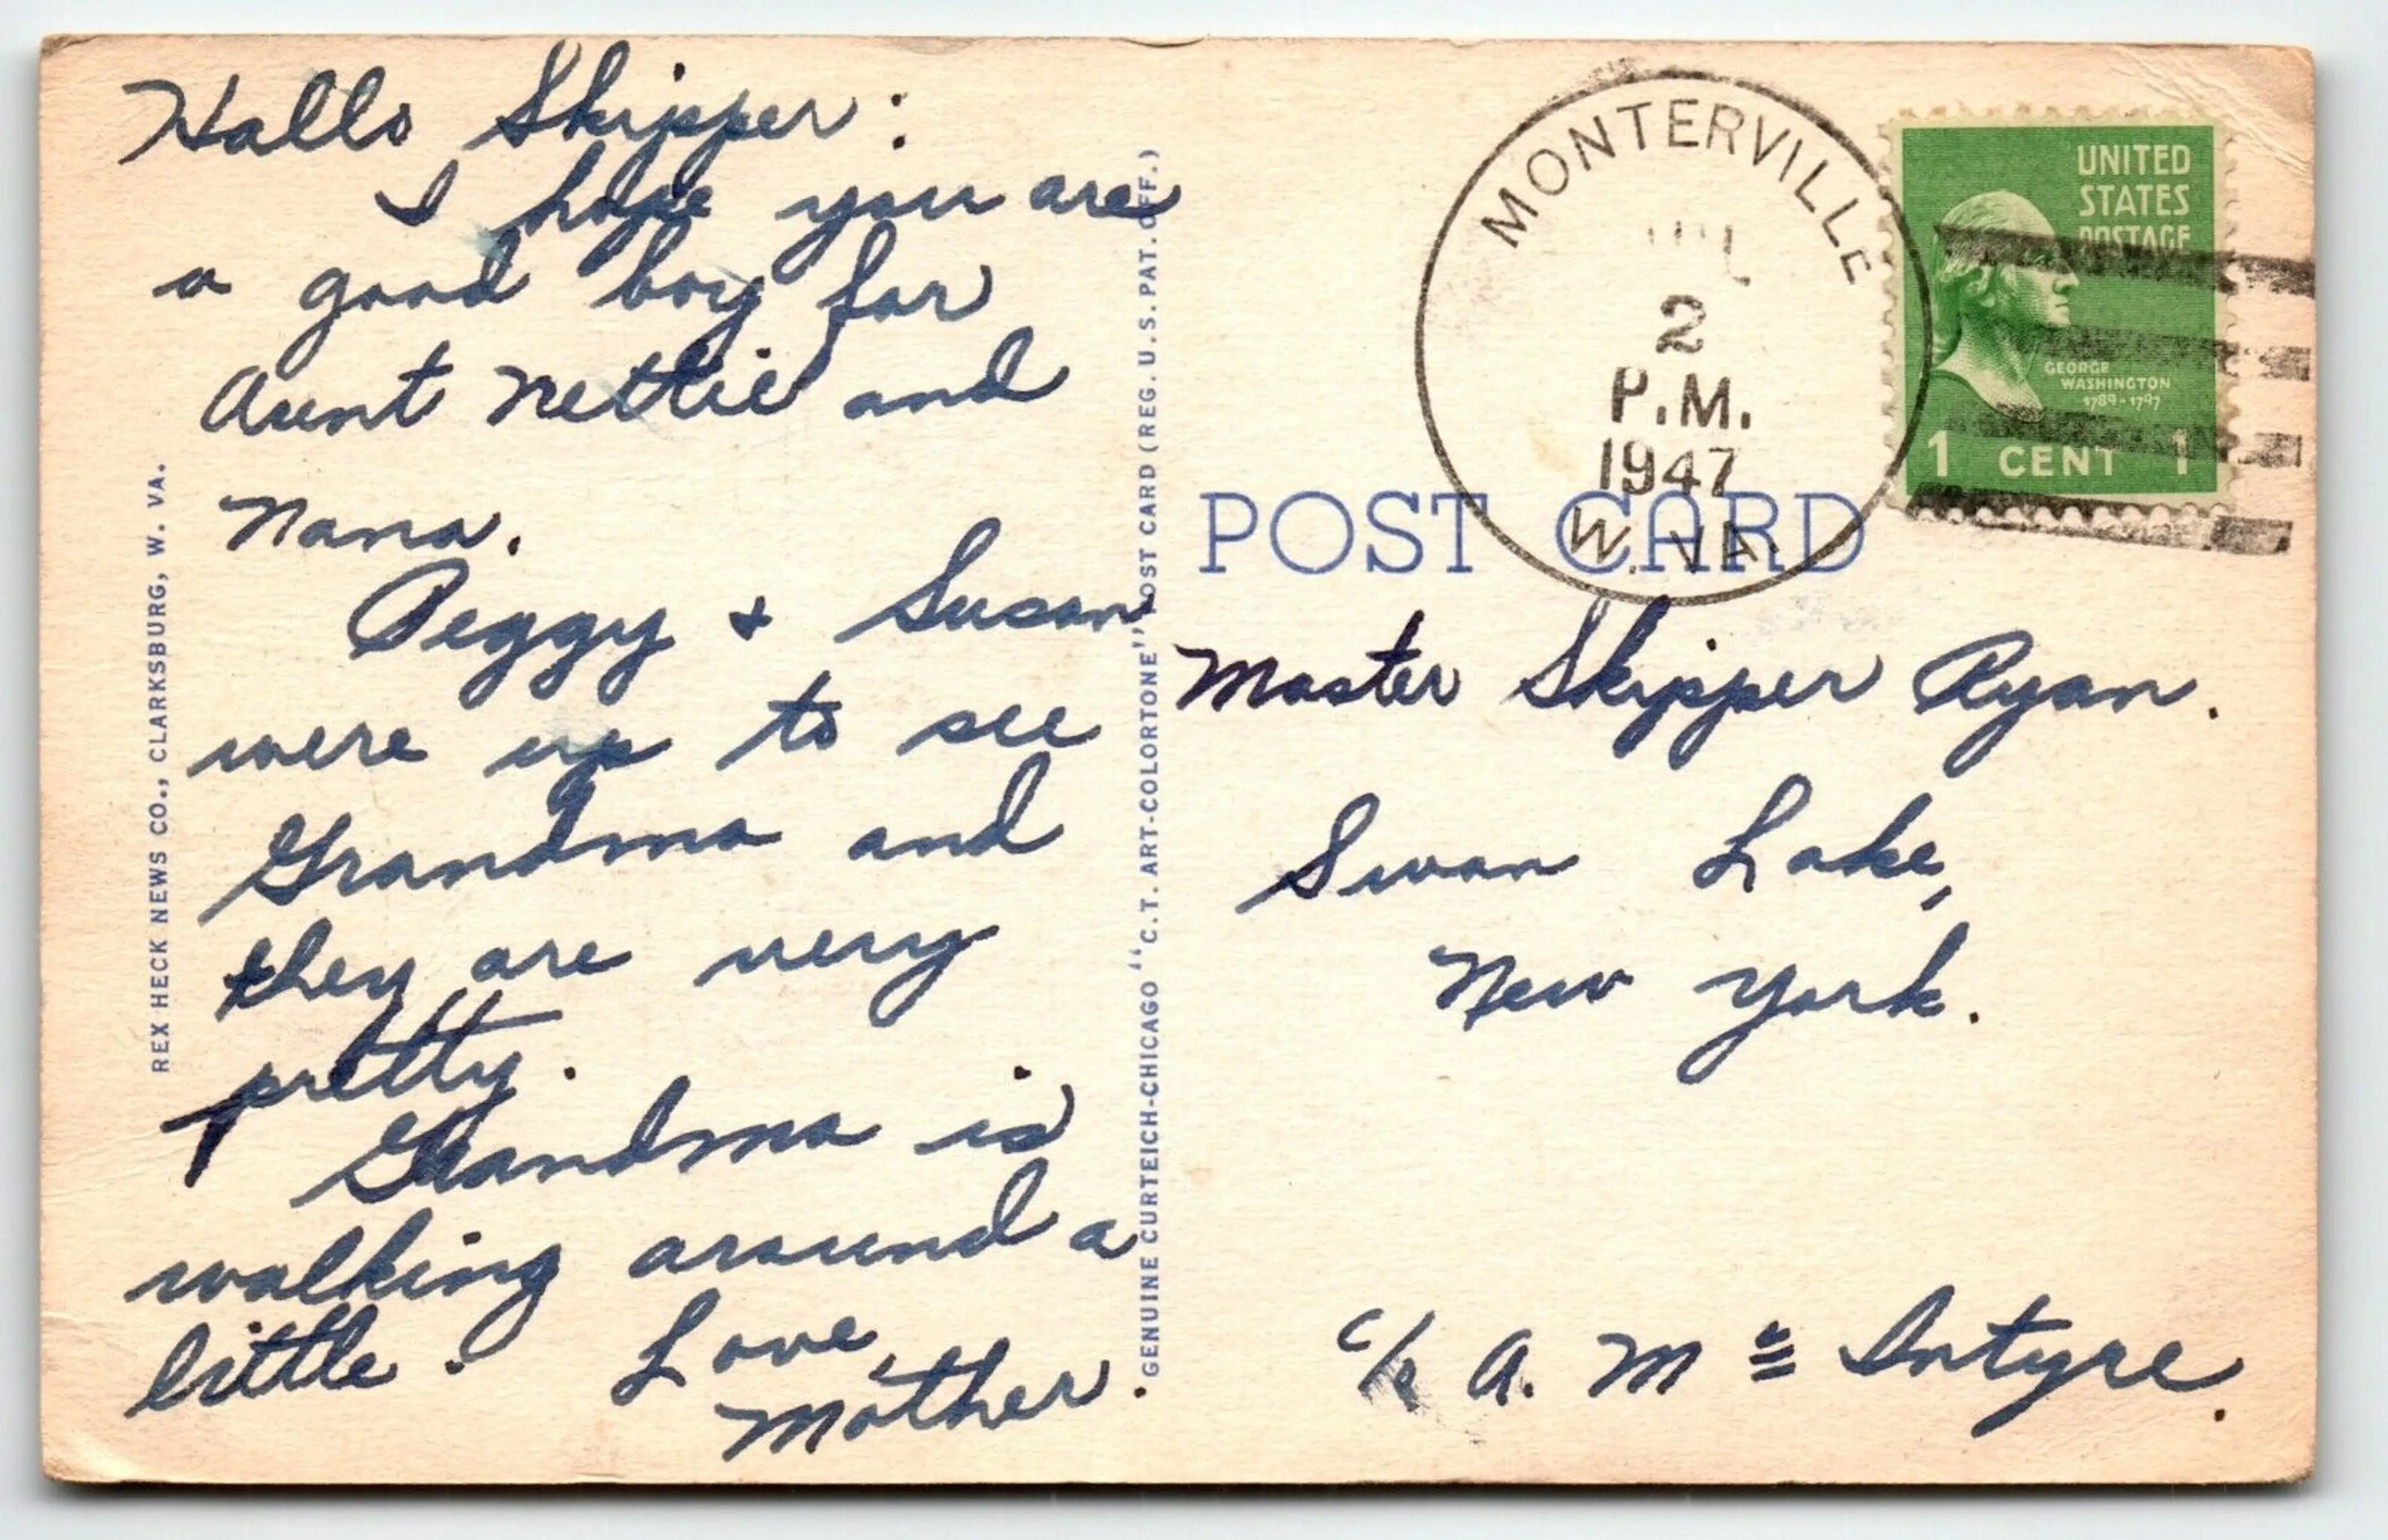 Hallo Skipper:
I hope you are
a good boy for
Aunt Nettie and
Nana.
Peggy + Susan
were up to see
Grandma and
they are very
pretty.
Grandma is
walking around a
little. Love,
Mother.
REX HECK NEWS CO., CLARKSBURG, W. VA.
GENUINE CURTEICH-CHICAGO "C.T. ART-COLORTONE" POST CARD (REG. U.S. PAT. OFF.)
MONTERVILLE
2
P.M.
1947
W. VA.
UNITED
STATES
POSTAGE
GEORGE
WASHINGTON
1789-1797
1 CENT 1
POST CARD
Master Skipper Ryan.
Swan Lake,
New York.
c/o A. Mc Intyre.